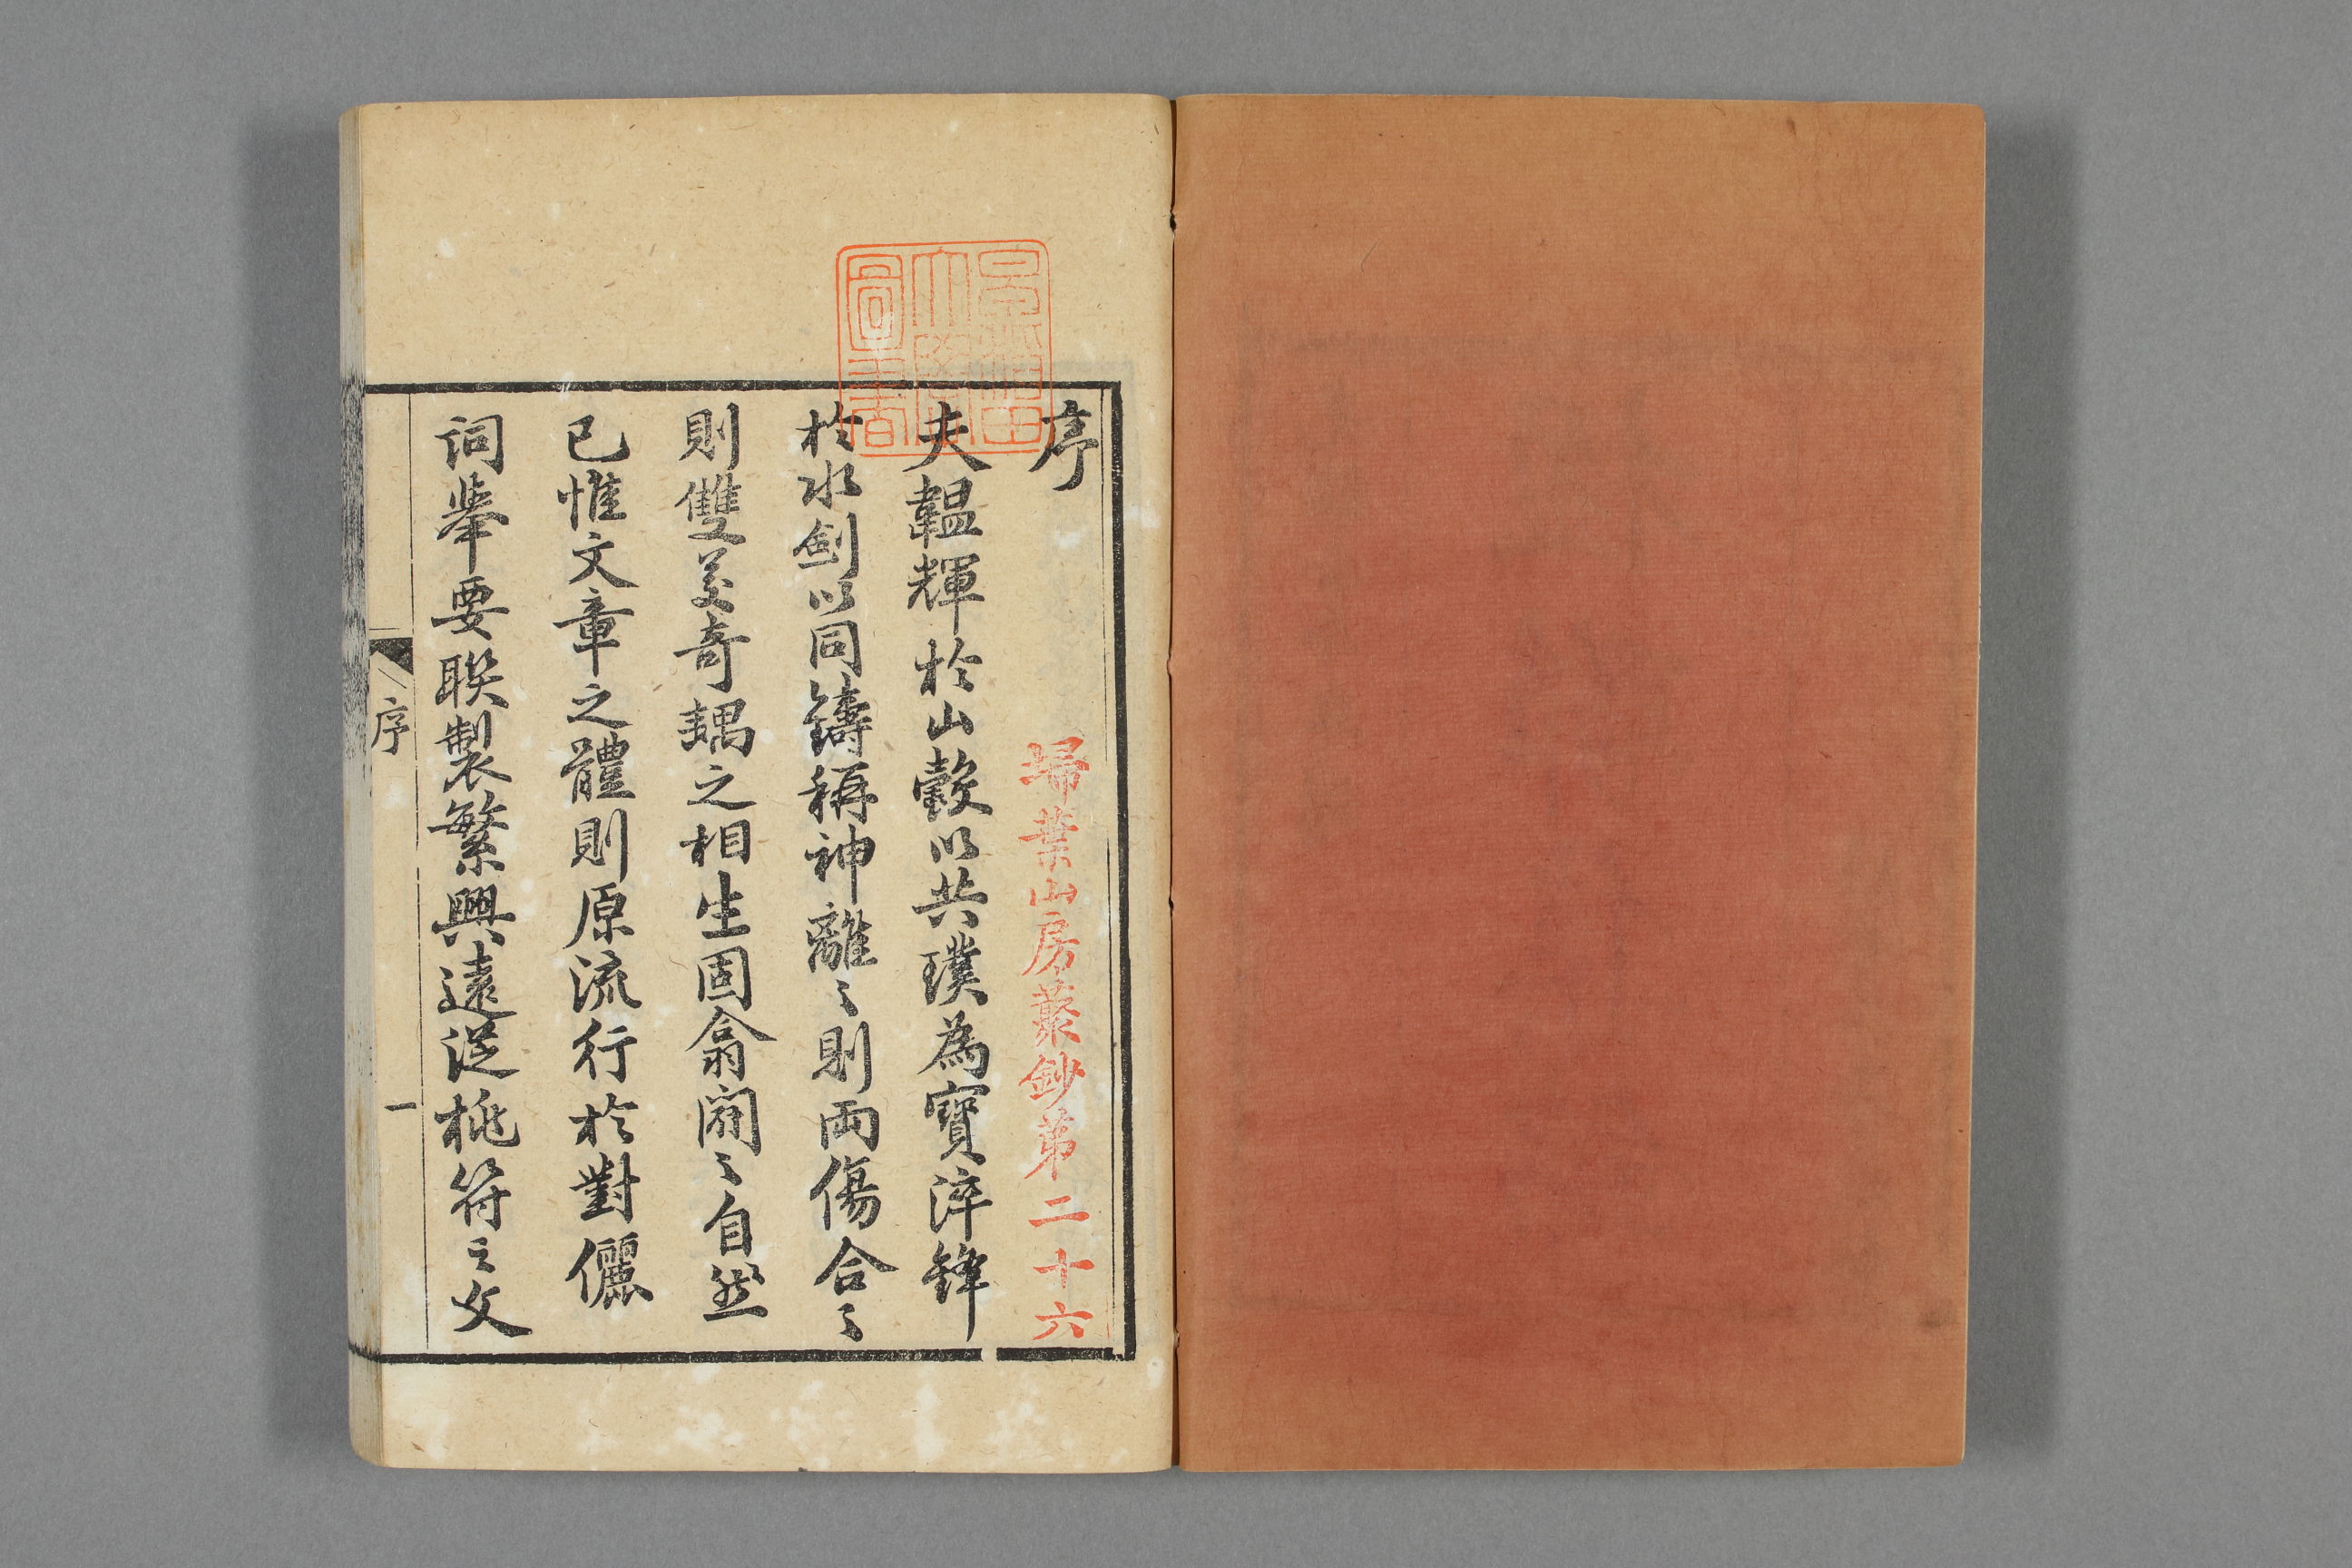 序
掃葉山房叢鈔第二十六
夫韞輝於山瑴以共璞為寶淬鋒
於水劍以同鑄稱神離〻則兩傷合〻
則雙美奇耦之相生固翕闢〻自然
已惟文章之體則原流行於對儷
詞犖要聯製繁興遠從桃符之文
序
一
早稲田
大學
圖書